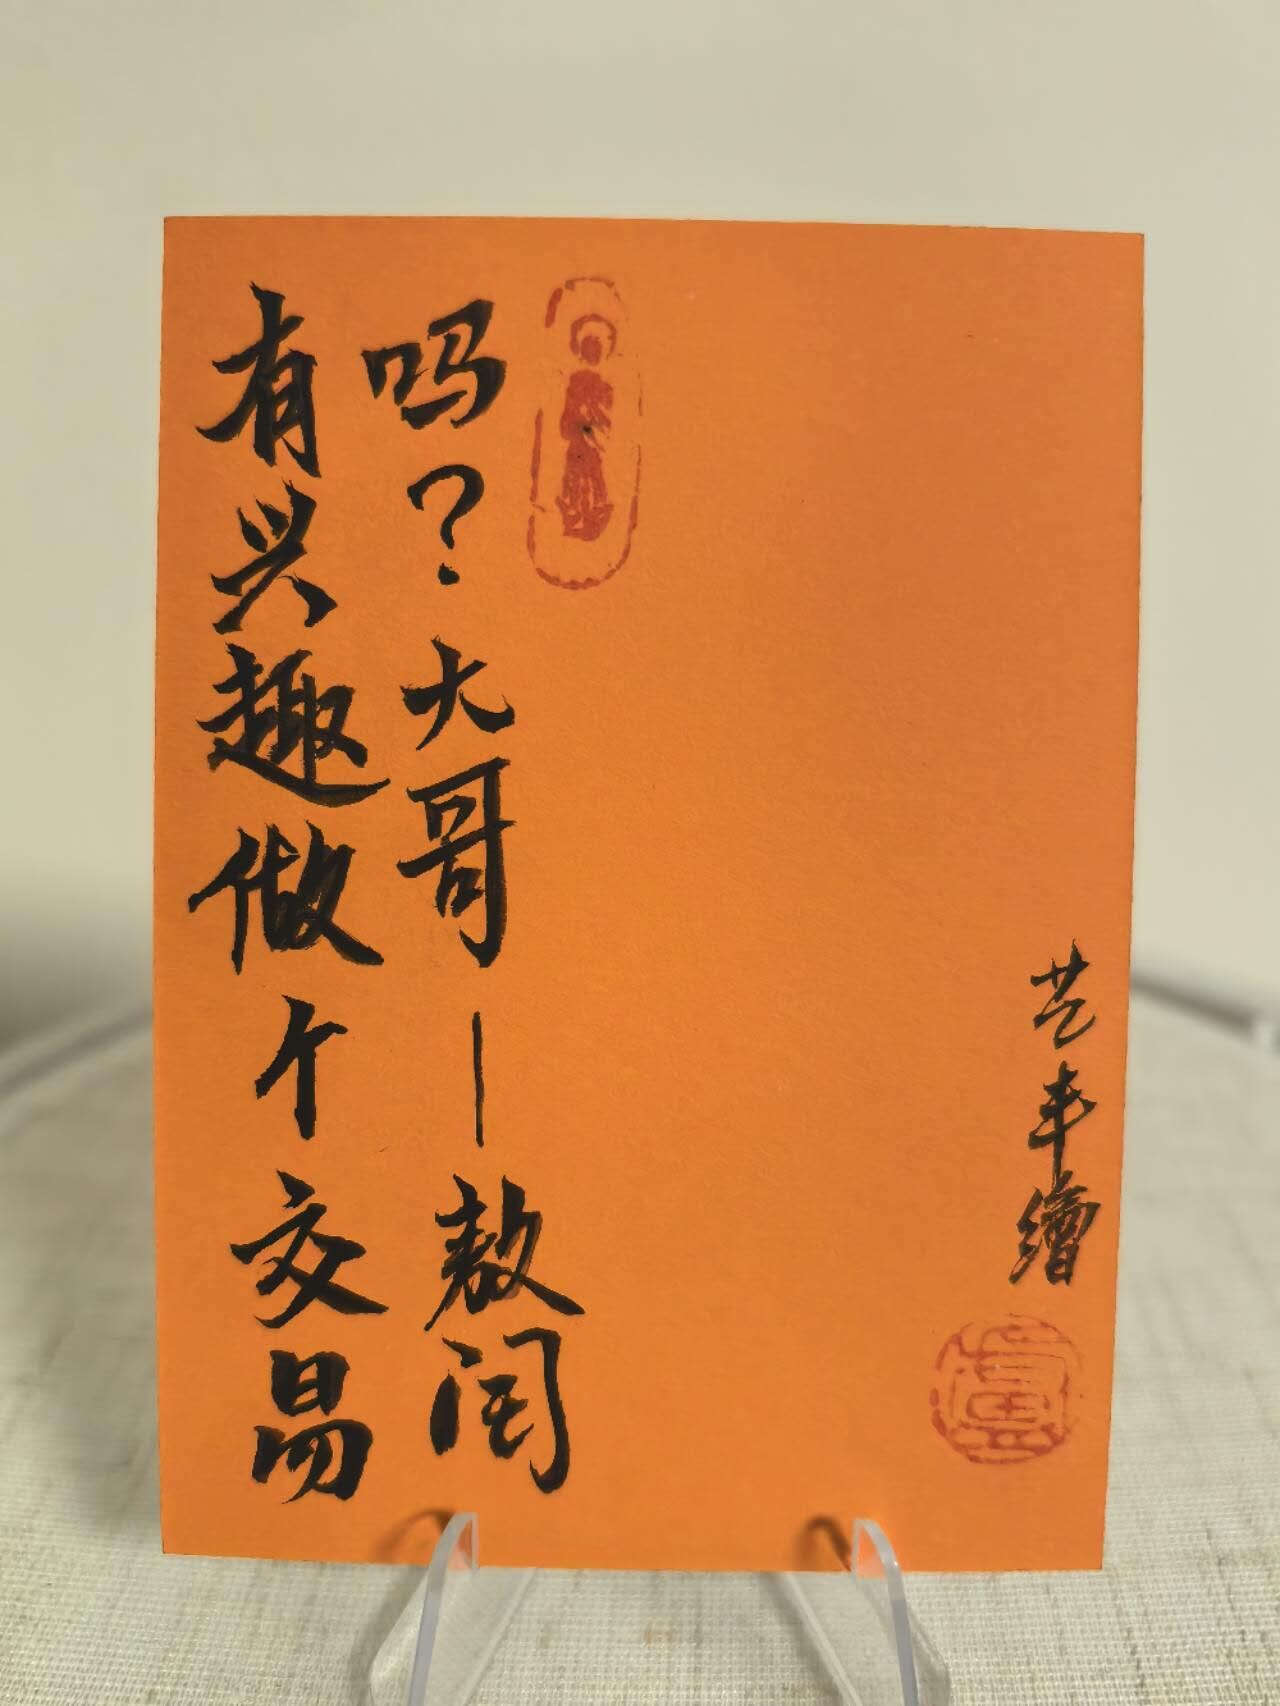 有兴趣做个交易
吗？大哥—敖闰
艺丰繪